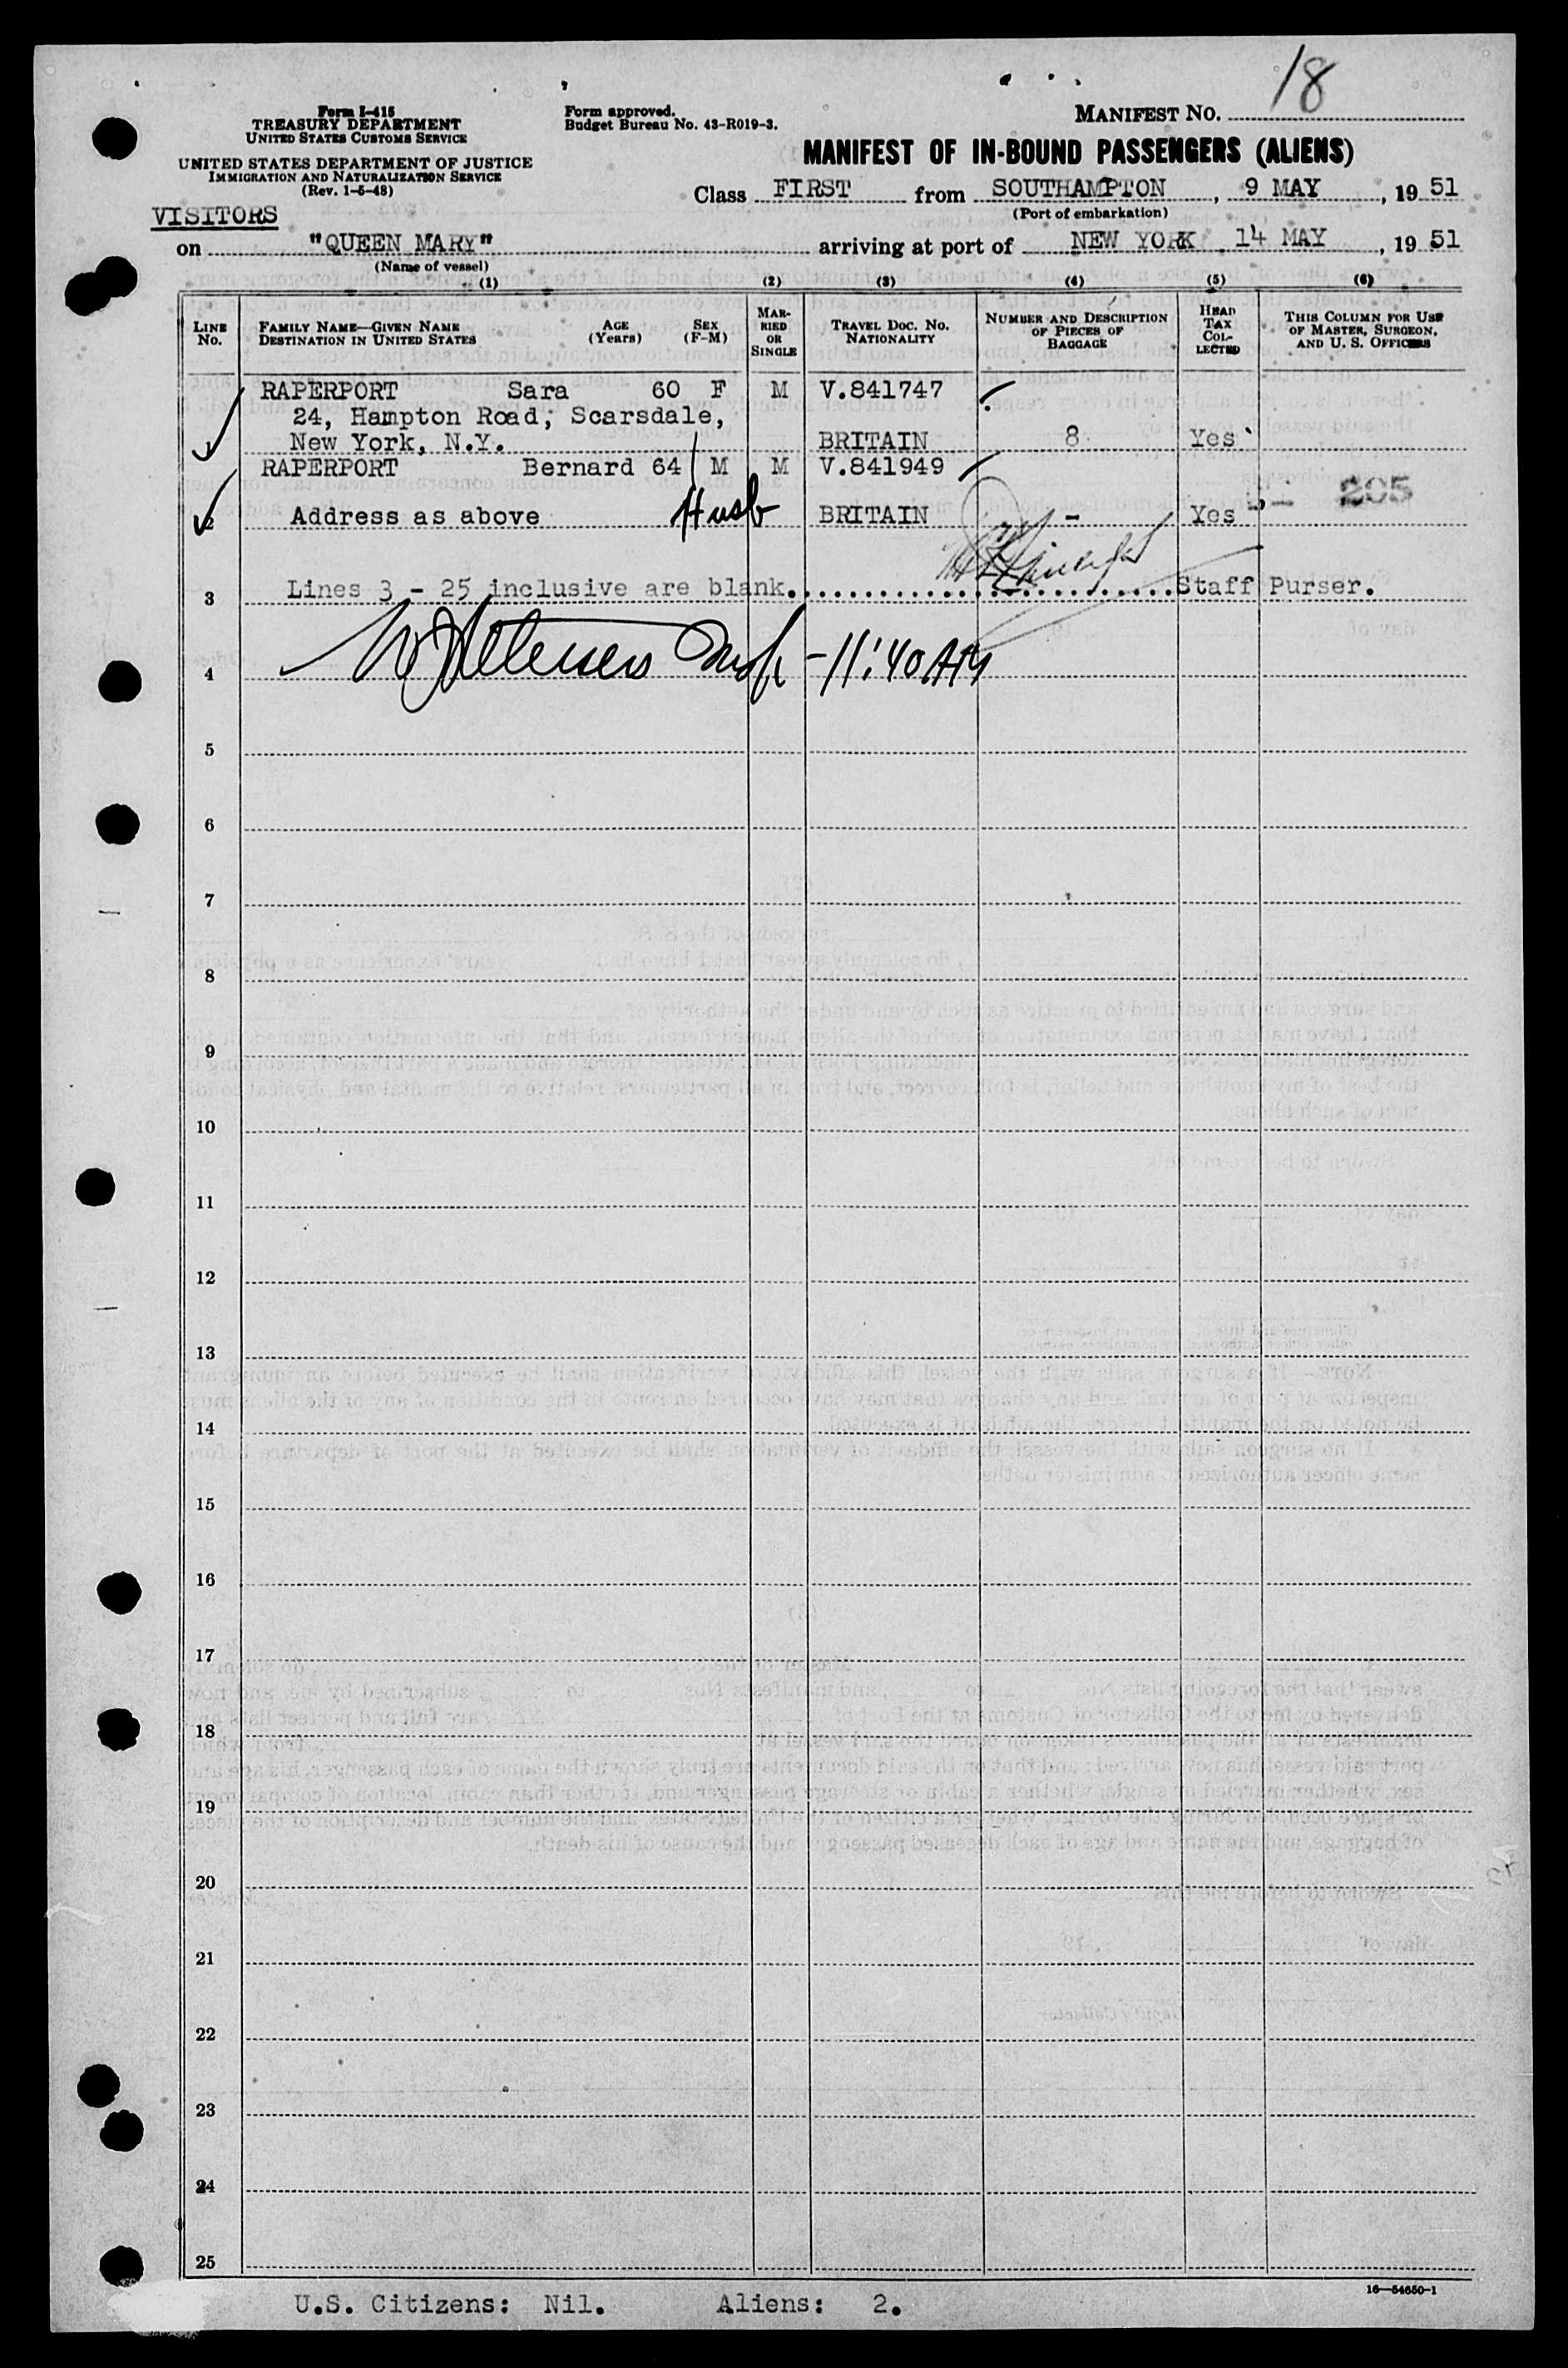 18
Form I-415
TREASURY DEPARTMENT
UNITED STATES CUSTOMS SERVICE
Form approved.
Budget Bureau No. 43-R019-3.
MANIFEST NO.
UNITED STATES DEPARTMENT OF JUSTICE
IMMIGRATION AND NATURALIZATION SERVICE
(Rev. 1-5-48)
MANIFEST OF IN-BOUND PASSENGERS (ALIENS)
Class FIRST from SOUTHAMPTON, 9 MAY, 19 51
(Port of embarkation)
VISITORS
on "QUEEN MARY" arriving at port of NEW YORK 14 MAY, 19 51
(Name of vessel)
(1) (2) (3) (4) (5) (6)
LINE No. FAMILY NAME—GIVEN NAME DESTINATION IN UNITED STATES AGE (Years) SEX (F-M) MARRIED OR SINGLE TRAVEL DOC. NO. NATIONALITY NUMBER AND DESCRIPTION OF PIECES OF BAGGAGE HEAD TAX COLLECTED THIS COLUMN FOR USE OF MASTER, SURGEON, AND U. S. OFFICERS
RAPERPORT Sara 60 F M V.841747
24, Hampton Road; Scarsdale,
1 New York, N.Y. BRITAIN 8 Yes
RAPERPORT Bernard 64 M M V.841949
2 Address as above Husb BRITAIN - Yes 205
3 Lines 3 - 25 inclusive are blank. Staff Purser.
4 11:40 AM
5
6
7
8
9
10
11
12
13
14
15
16
17
18
19
20
21
22
23
24
25
16—54650-1
U.S. Citizens: Nil. Aliens: 2.